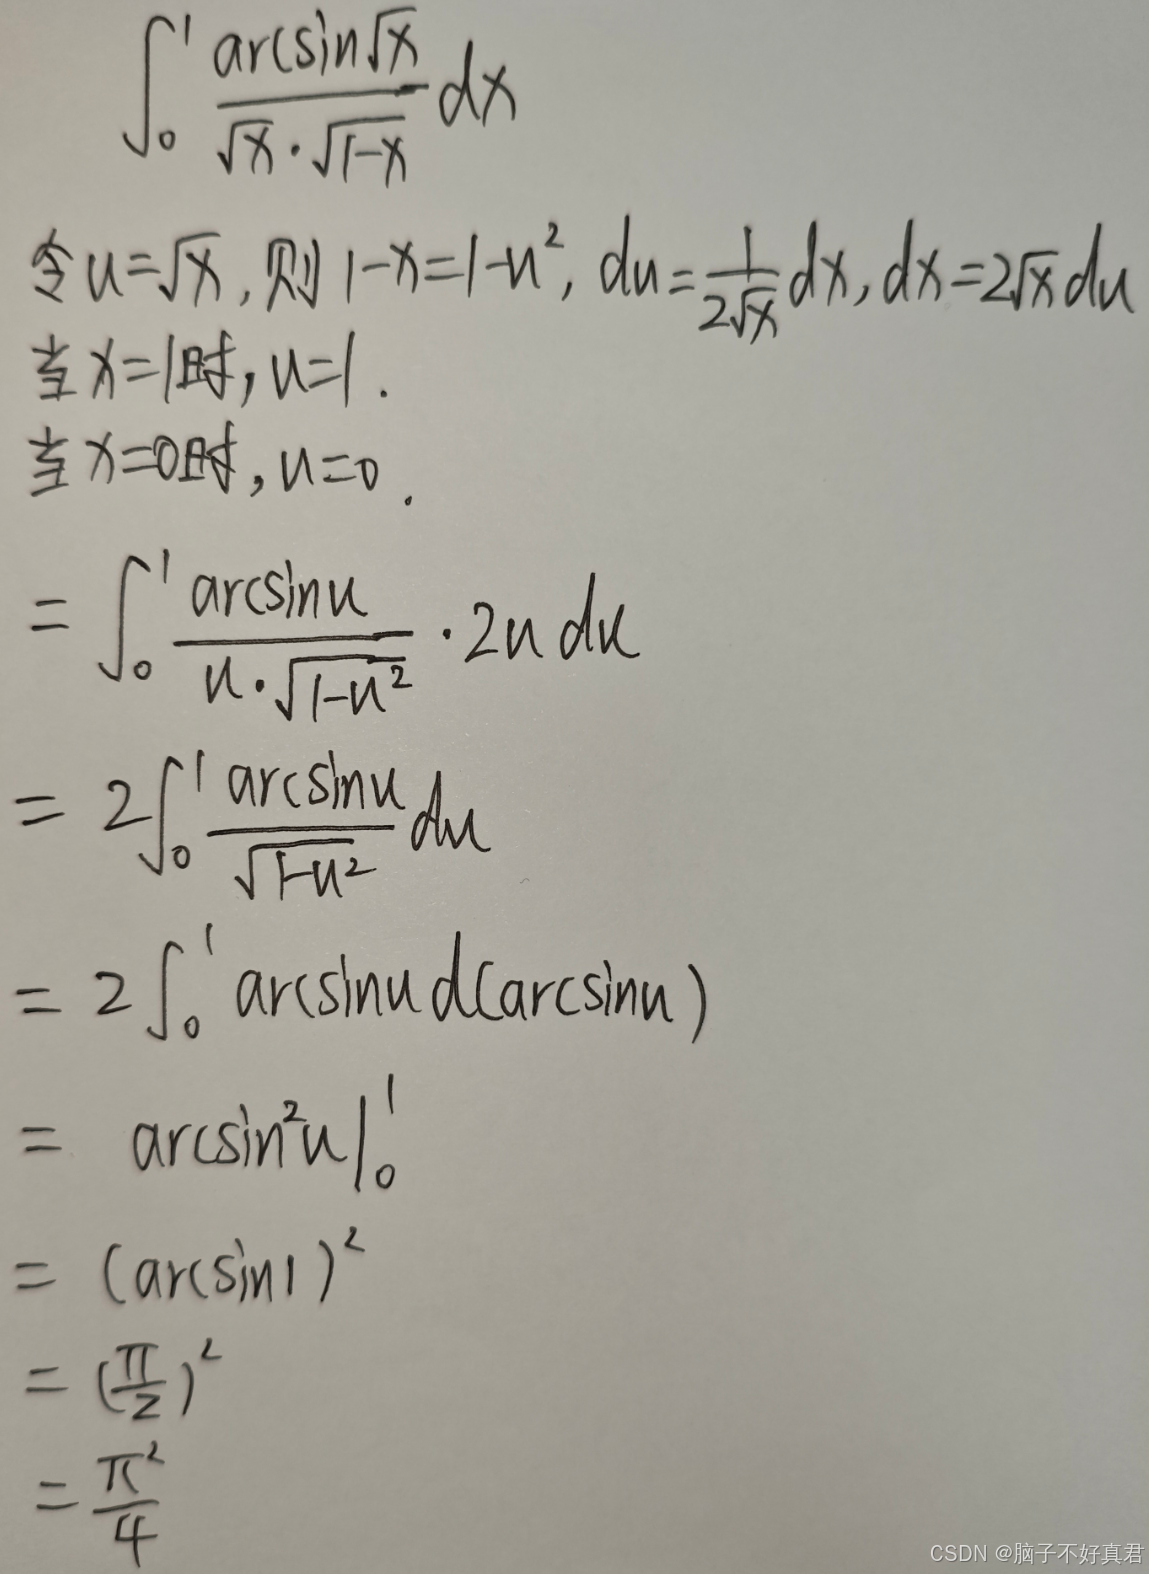 ∫₀¹ arcsin√x / (√x·√(1-x)) dx
令u=√x, 则1-x=1-u², du=1/(2√x) dx, dx=2√x du
当x=1时, u=1.
当x=0时, u=0.
= ∫₀¹ arcsinu / (u·√(1-u²)) ·2u du
= 2∫₀¹ arcsinu / √(1-u²) du
= 2∫₀¹ arcsinu d(arcsinu)
= arcsin²u|₀¹
= (arcsin1)²
= (π/2)²
= π²/4
CSDN @脑子不好真君